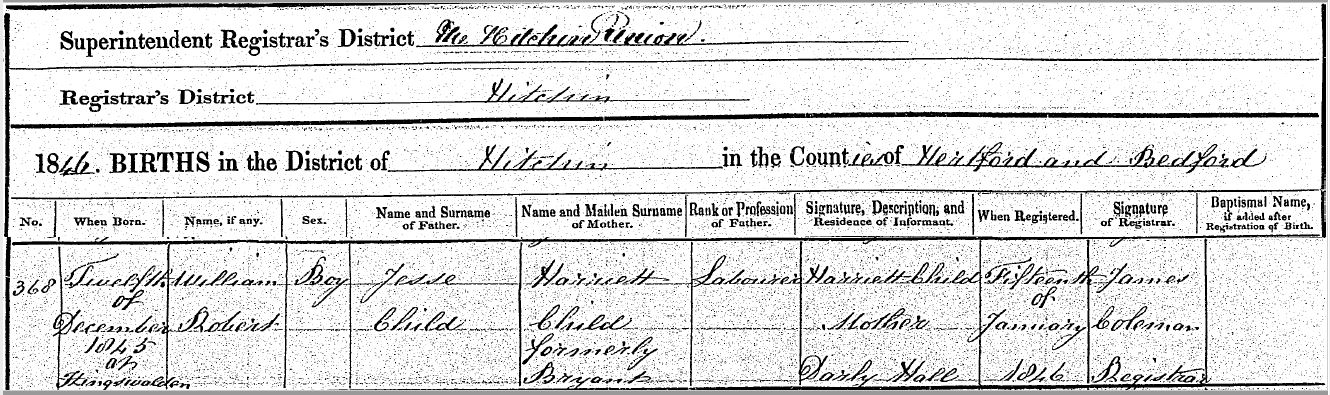 Superintendent Registrar's District The Hitchin Union.
Registrar's District Hitchin
1846. BIRTHS in the District of Hitchin in the Counties of Hertford and Bedford
No. When Born. Name, if any. Sex. Name and Surname of Father. Name and Maiden Surname of Mother. Rank or Profession of Father. Signature, Description, and Residence of Informant. When Registered. Signature of Registrar. Baptismal Name, if added after Registration of Birth.
368 Twelfth William Boy Jesse Harriett Labourer Harriett Child Fifteenth James
of of
December Robert Child Child Mother January Coleman
1845 formerly
at Bryant Darly Hall 1846 Registrar
Kingswalden